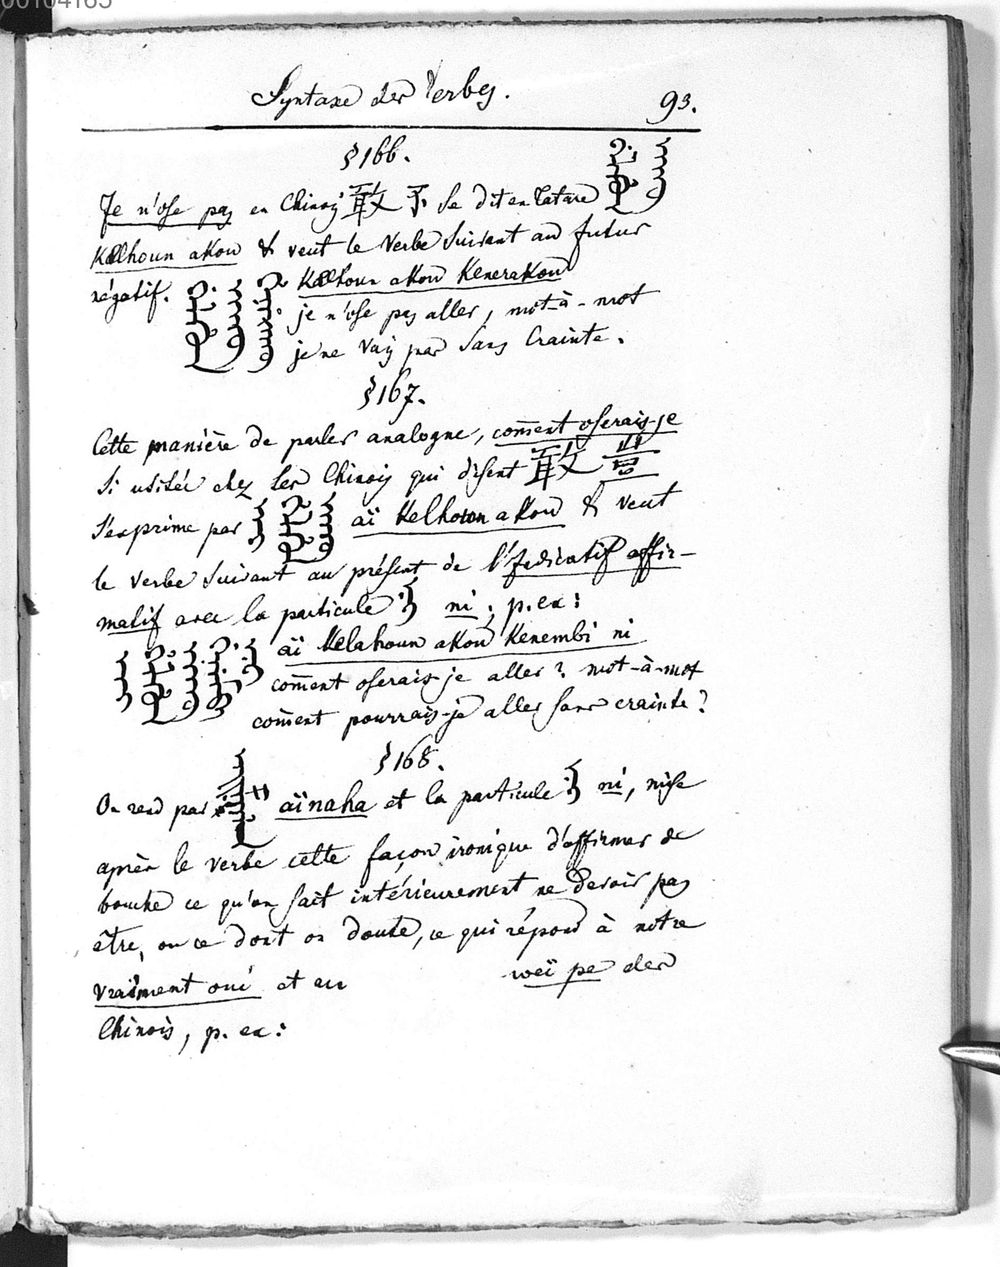 00104165
Syntaxe des Verbes. 93.
§166.
Je n'ose pas en Chinois 敢不 se dit en Tatare
Kelhoun akou & veut le Verbe suivant au futur
négatif. Kelhoun akou Kenerakou
je n'ose pas aller, mot-à-mot
je ne vais pas sans crainte.
§167.
Cette manière de parler analogue, com̄ent oserais-je
si usitée chez les Chinois qui disent 敢豈
s'exprime par aï Kelhoun akou & veut
le verbe suivant au présent de l'Indicatif affir-
matif avec la particule ni; p. ex:
aï Kelahoun akou Kenembi ni
com̄ent oserais-je aller? mot-à-mot
com̄ent pourrais-je aller sans crainte?
§168.
On rend par aïnaha et la particule ni, mise
après le verbe cette façon ironique d'affirmer de
bouche ce qu'on sait intérieurement ne devoir pas
être, ou ce dont on doute, ce qui répond à notre
vraiment oui et au weï pe des
Chinois, p. ex: